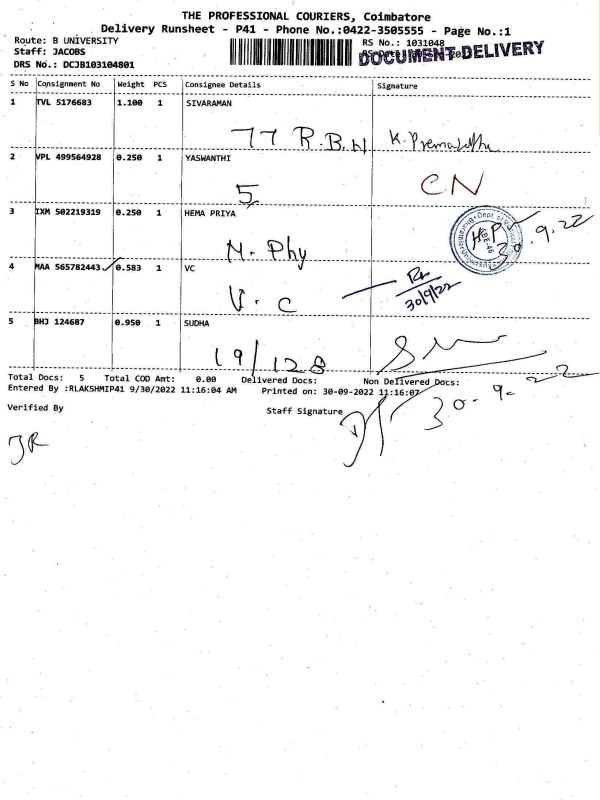 THE PROFESSIONAL COURIERS, Coimbatore
Delivery Runsheet - P41 - Phone No.:0422-3505555 - Page No.:1
Route: B UNIVERSITY
RS No.: 1031048
Staff: JACOBS
DOCUMENT DELIVERY
DRS No.: DCJB103104801
S No Consignment No Weight PCS Consignee Details Signature
1 TVL 5176683 1.100 1 SIVARAMAN
77 R.B.H
2 VPL 499564928 0.250 1 YASWANTHI
5 CN
3 IXM 502219319 0.250 1 HEMA PRIYA
M. Phy H.P 30.9.22
4 MAA 565782443 0.583 1 VC
V.C 30/9/22
5 BHJ 124687 0.950 1 SUDHA
19/128
Total Docs: 5 Total COD Amt: 0.00 Delivered Docs: Non Delivered Docs:
Entered By :RLAKSHMIP41 9/30/2022 11:16:04 AM Printed on: 30-09-2022 11:16:07
30-9-22
Verified By Staff Signature
JR